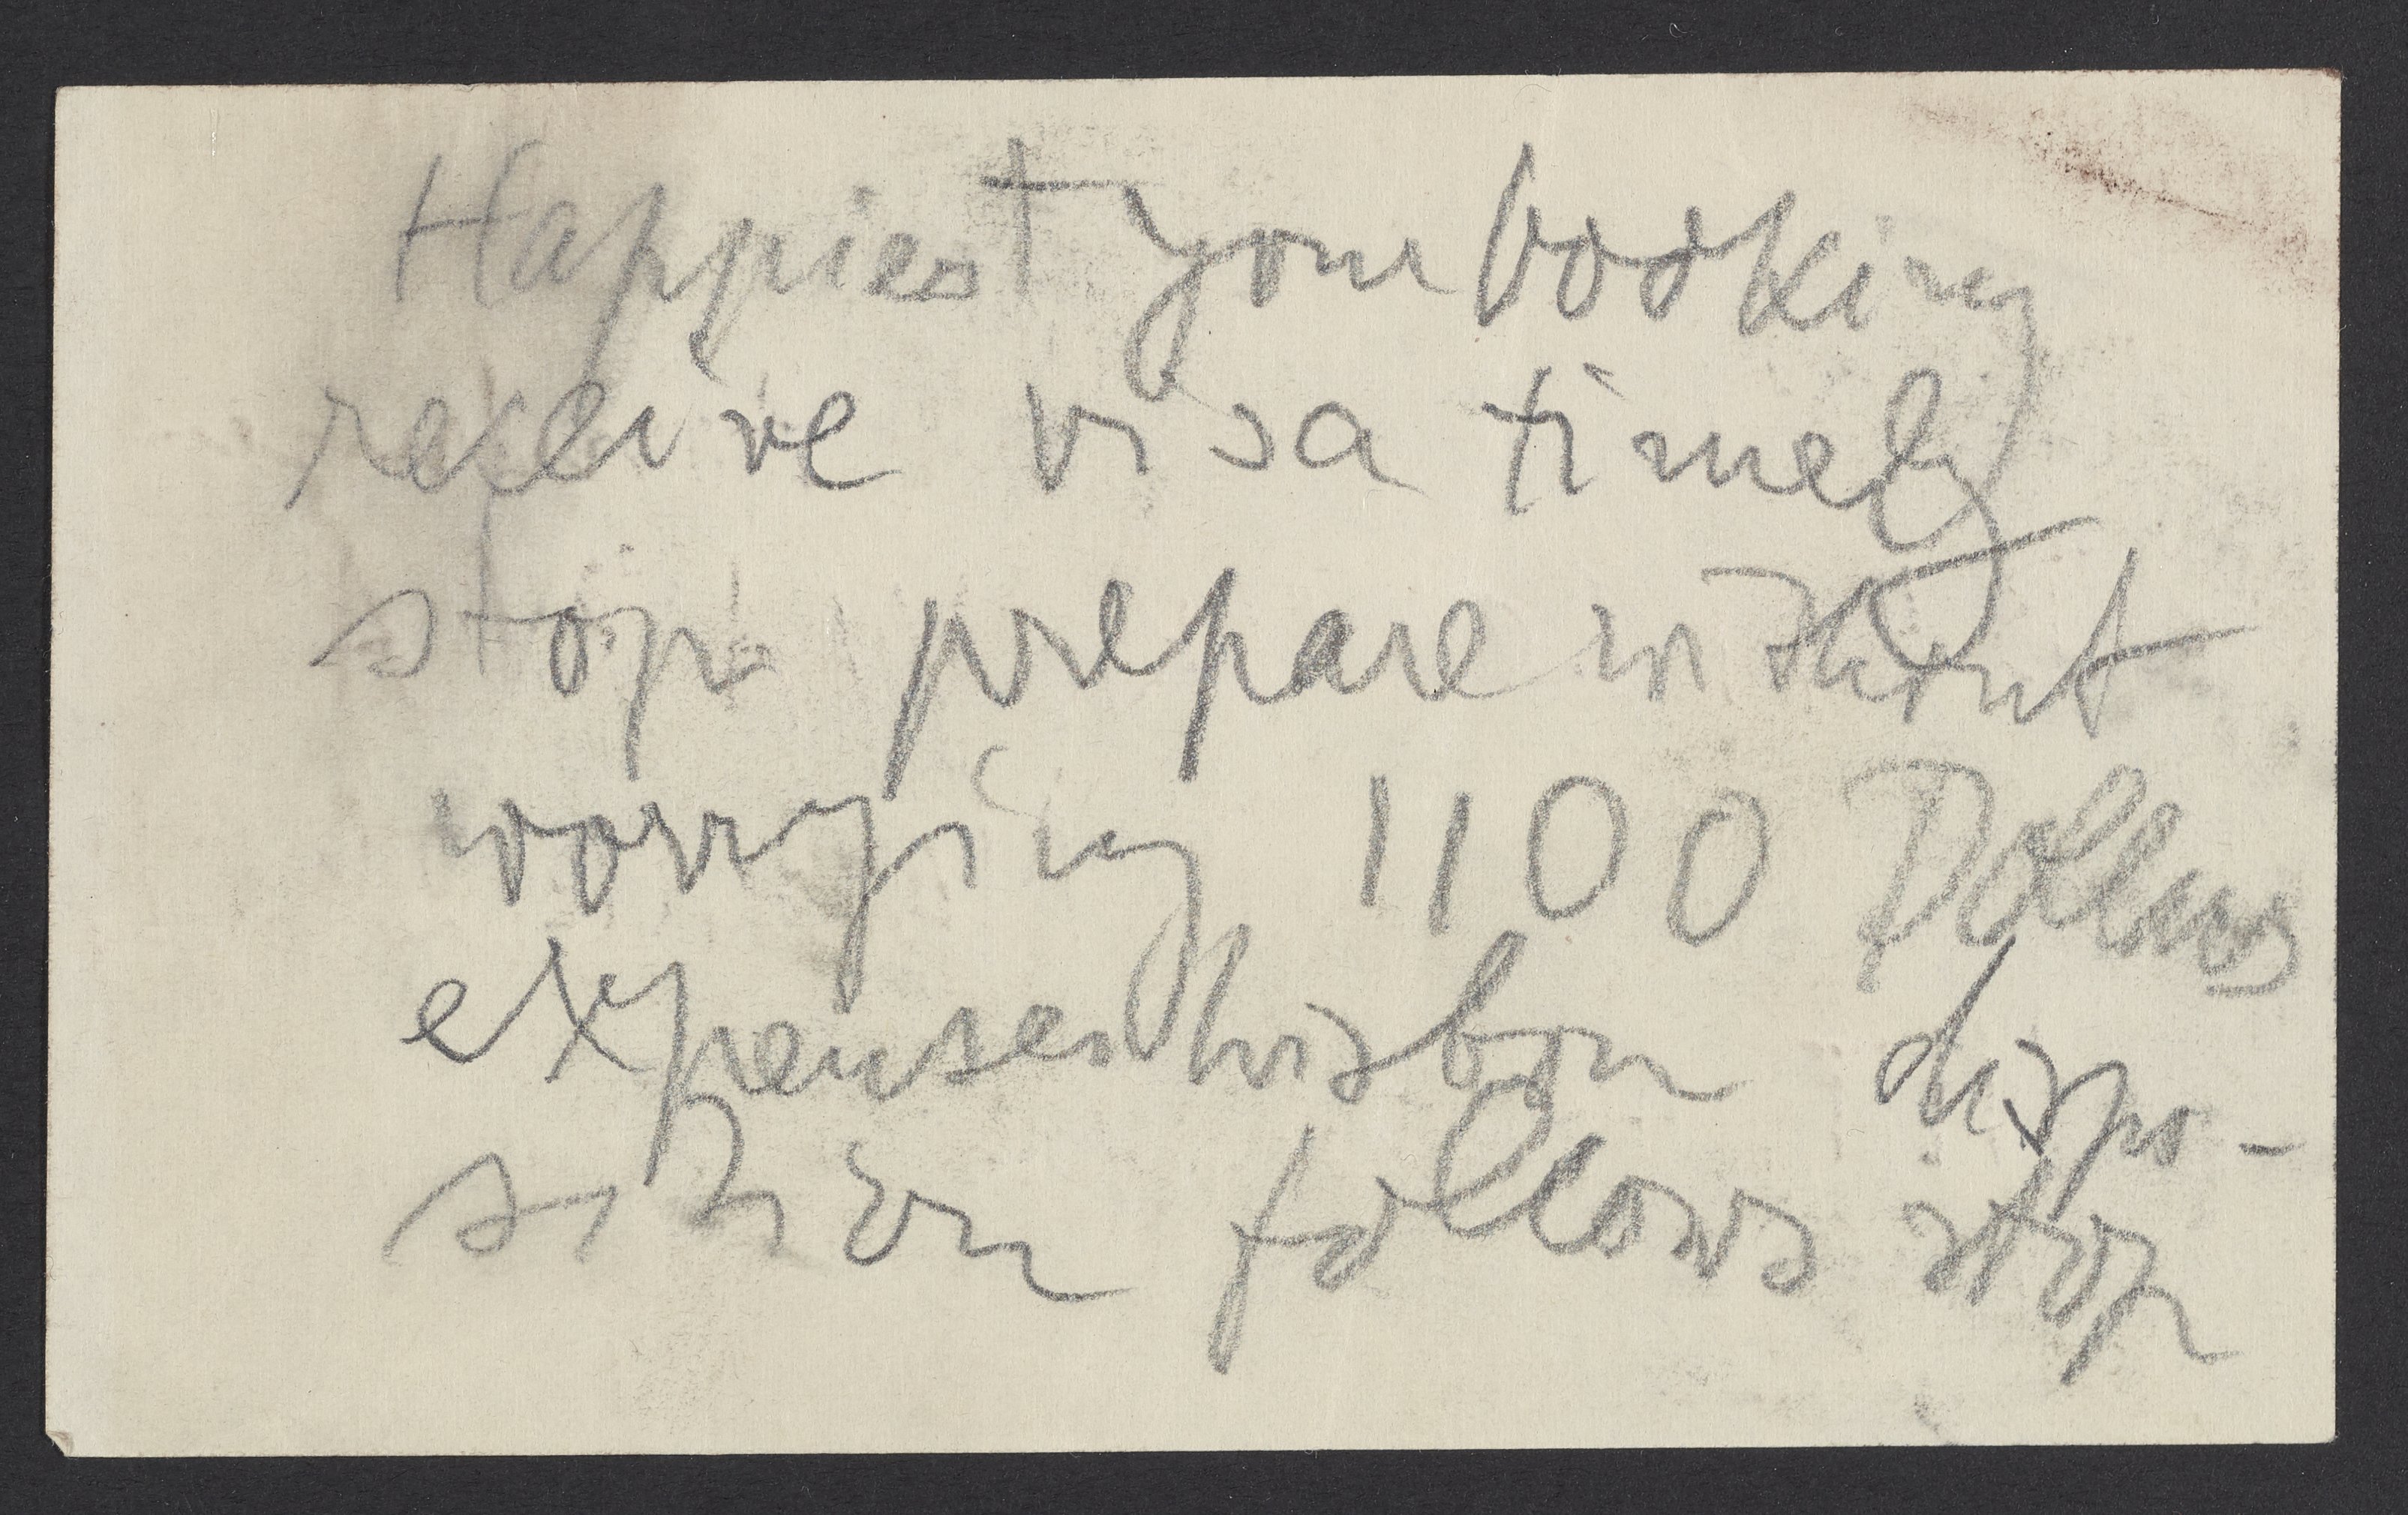 Happiest your booking
receive visa timely
stop prepare without
worrying 1100 Dollars
expenses Lisbon dispo-
sition follows stop